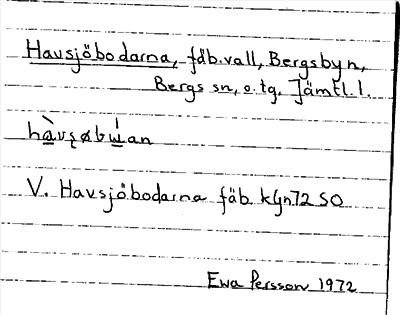 Havsjöbodarna, fäb.vall, Bergsbyn,
Bergs sn, o. tg, Jämtl. l.
hàvʂøbẃan
V. Havsjöbodarna fäb. kgn72 SO
Ewa Persson 1972